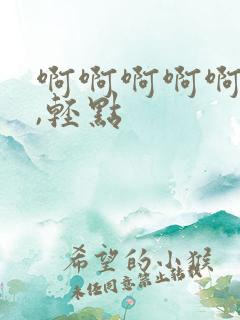 啊啊啊啊啊
,轻點
希望的小猴
未任同意禁止转载